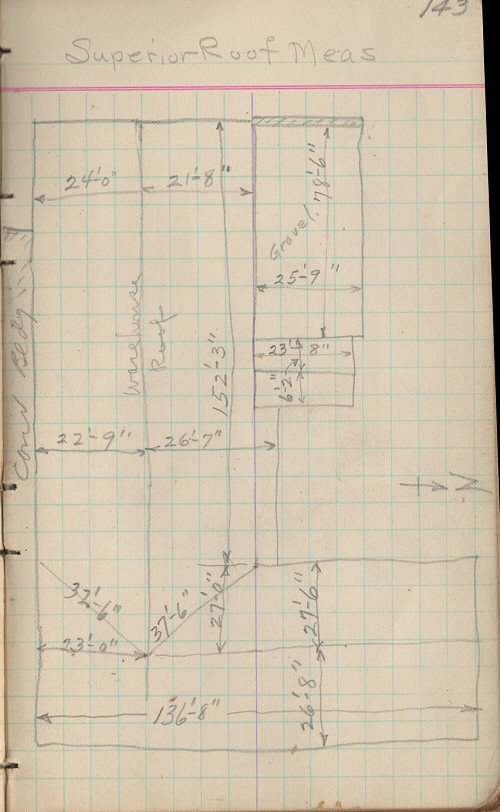 143
Superior Roof Meas
24'-0"
21'-8"
78'-6"
Gravel
25'-9"
Warehouse
Roof
152'-3"
23'-8"
6'-2"
22'-9"
26'-7"
N
32'-6"
37'-6"
27'-0"
27'-6"
23'-0"
26'-8"
136'-8"